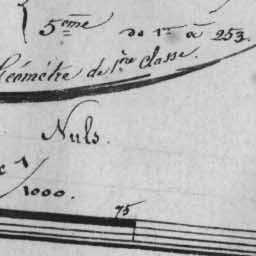 5ème do 1er à 253.
Géomètre de 1ère classe.
Nuls.
1
1000.
75